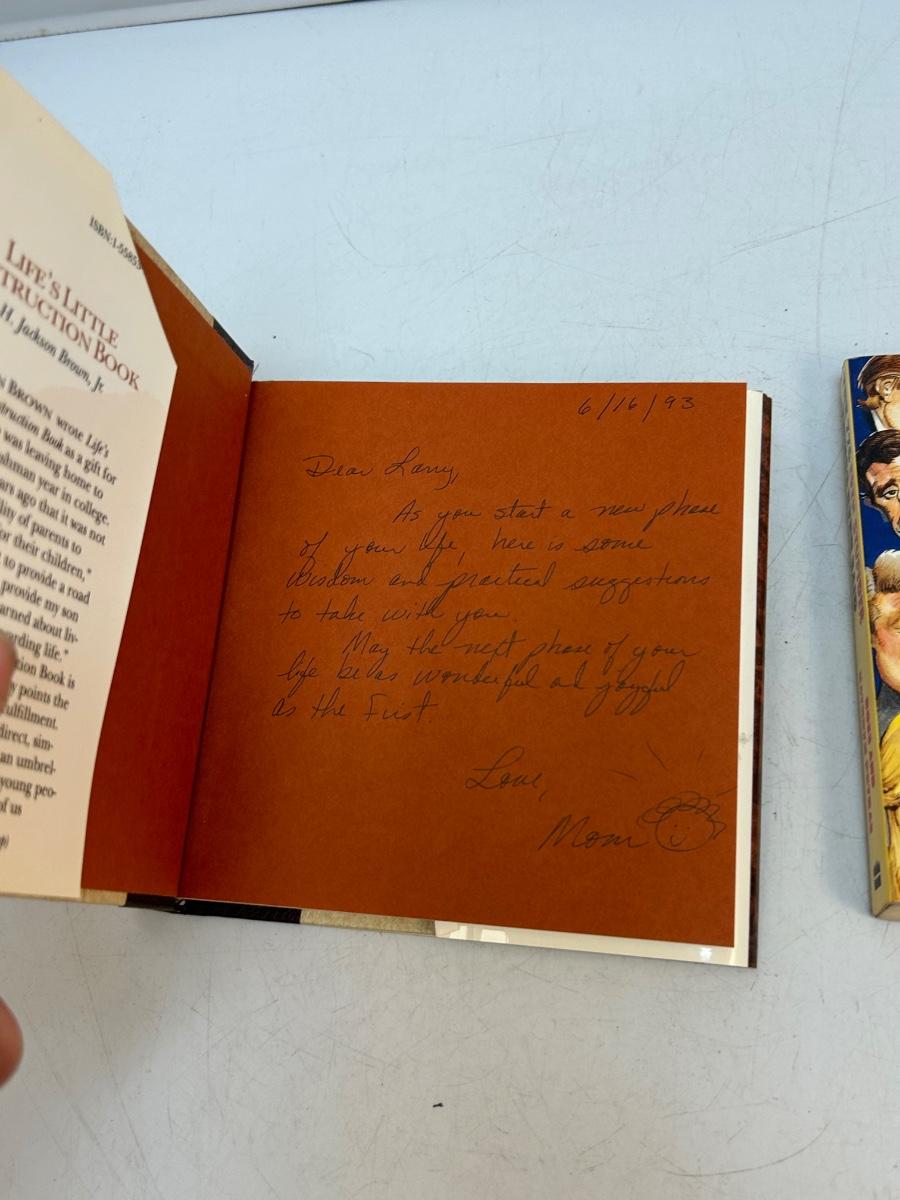 ISBN:1-5585
LIFE'S LITTLE
TRUCTION BOOK
H. Jackson Brown, Jr.
N BROWN wrote Life's
truction Book as a gift for
was leaving home to
shman year in college.
ars ago that it was not
lity of parents to
or their children,"
t to provide a road
provide my son
arned about liv-
rding life."
tion Book is
y points the
ulfillment.
direct, sim-
an umbrel-
young peo-
of us
6/16/93
Dear Larry,
As you start a new phase
of your life, here is some
wisdom and practical suggestions
to take with you.
May the next phase of your
life be as wonderful and joyful
as the First.
Love,
Mom